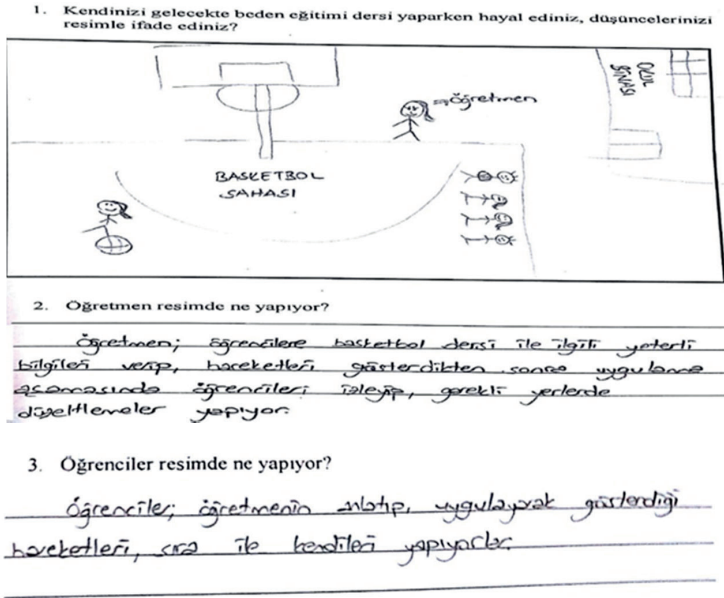 1. Kendinizi gelecekte beden eğitimi dersi yaparken hayal ediniz, düşüncelerinizi
resimle ifade ediniz?
OKUL
BİNASI
öğretmen
BASKETBOL
SAHASI
2. Öğretmen resimde ne yapıyor?
Öğretmen; öğrencilere basketbol dersi ile ilgili yeterli
bilgileri verip, hareketleri gösterdikten sonra uygulama
aşamasında öğrencileri izleyip, gerekli yerlerde
düzeltlemeler yapıyor.
3. Öğrenciler resimde ne yapıyor?
Öğrenciler; öğretmenin anlatıp, uygulayarak gösterdiği
hareketleri, sıra ile kendileri yapıyorlar.